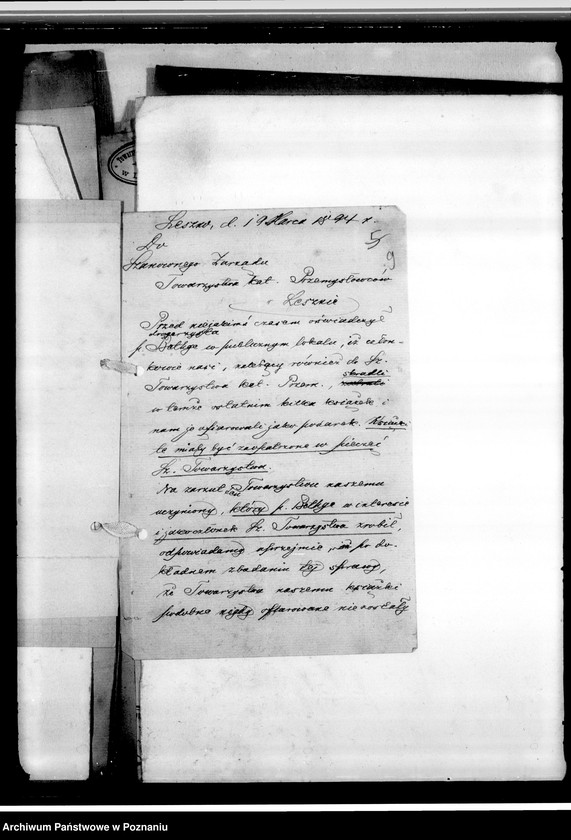 Leszno, d. 19 Marca 1894 r.
5
9
Do
Szanownego Zarządu
Towarzystwa Kat. Przemysłowców
w Lesznie
Przed niejakimś czasem oświadczył
drogerzysta
p. w publicznym lokalu, iż człon-
kowie nasi, należący również do Sz.
Towarzystwa Kat. Przem., skradli
w temże ostatnim kilka książek i
nam je ofiarowali jako podarek. Książki
te miały być zaopatrzone w pieczęć
Sz. Towarzystwa.
Na zarzut ten Towarzystwu naszemu
uczyniony, który p. w interesie
i jako członek Sz. Towarzystwa zrobił,
odpowiadamy uprzejmie, po do-
kładnem zbadaniu tej sprawy,
że Towarzystwu naszemu książki
podobne nigdy ofiarowane nie zostały
Archiwum Państwowe w Poznaniu